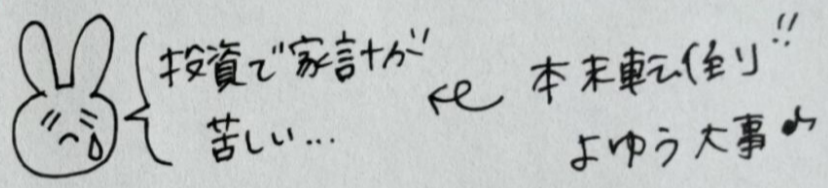 投資で家計が
苦しい…
本末転倒!!
よゆう大事♪